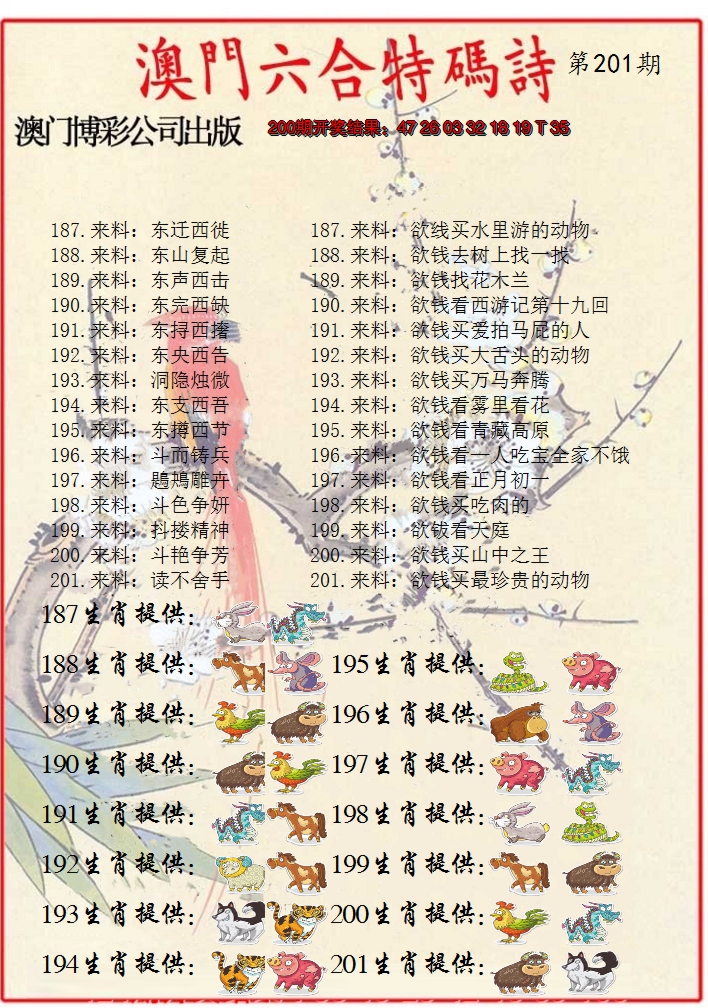 澳門六合特碼詩 第201期
澳门博彩公司出版 200期开奖结果：47 26 03 32 18 19 T 35
187.来料：东迁西徙 187.来料：欲线买水里游的动物
188.来料：东山复起 188.来料：欲钱去树上找一找
189.来料：东声西击 189.来料：欲钱找花木兰
190.来料：东完西缺 190.来料：欲钱看西游记第十九回
191.来料：东挦西撦 191.来料：欲钱买爱拍马屁的人
192.来料：东央西告 192.来料：欲钱买大舌头的动物
193.来料：洞隐烛微 193.来料：欲钱买万马奔腾
194.来料：东支西吾 194.来料：欲钱看雾里看花
195.来料：东撙西节 195.来料：欲钱看青藏高原
196.来料：斗而铸兵 196.来料：欲钱看一人吃宝全家不饿
197.来料：鵾鴂雕卉 197.来料：欲钱看正月初一
198.来料：斗色争妍 198.来料：欲钱买吃肉的
199.来料：抖搂精神 199.来料：欲钹看天庭
200.来料：斗艳争芳 200.来料：欲钱买山中之王
201.来料：读不舍手 201.来料：欲钱买最珍贵的动物
187生肖提供：
188生肖提供： 195生肖提供：
189生肖提供： 196生肖提供：
190生肖提供： 197生肖提供：
191生肖提供： 198生肖提供：
192生肖提供： 199生肖提供：
193生肖提供： 200生肖提供：
194生肖提供： 201生肖提供：